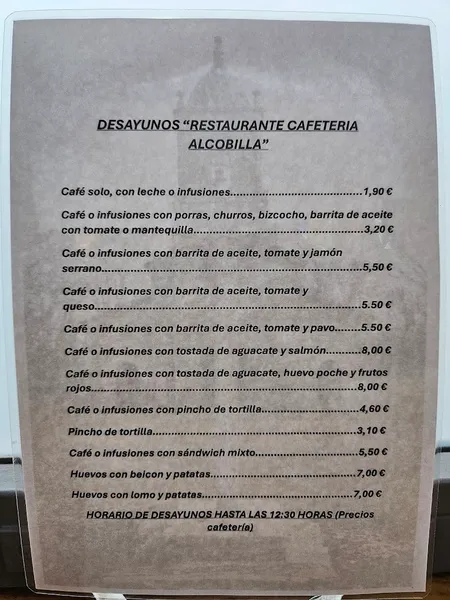 DESAYUNOS “RESTAURANTE CAFETERIA
ALCOBILLA”
Café solo, con leche o infusiones......................................1,90 €
Café o infusiones con porras, churros, bizcocho, barrita de aceite
con tomate o mantequilla.................................................3,20 €
Café o infusiones con barrita de aceite, tomate y jamón
serrano...........................................................................5,50 €
Café o infusiones con barrita de aceite, tomate y
queso.............................................................................5.50 €
Café o infusiones con barrita de aceite, tomate y pavo.......5.50 €
Café o infusiones con tostada de aguacate y salmón..........8,00 €
Café o infusiones con tostada de aguacate, huevo poche y frutos
rojos..............................................................................8,00 €
Café o infusiones con pincho de tortilla............................4,60 €
Pincho de tortilla............................................................3,10 €
Café o infusiones con sándwich mixto..............................5,50 €
Huevos con beicon y patatas...........................................7,00 €
Huevos con lomo y patatas............................................7,00 €
HORARIO DE DESAYUNOS HASTA LAS 12:30 HORAS (Precios
cafetería)